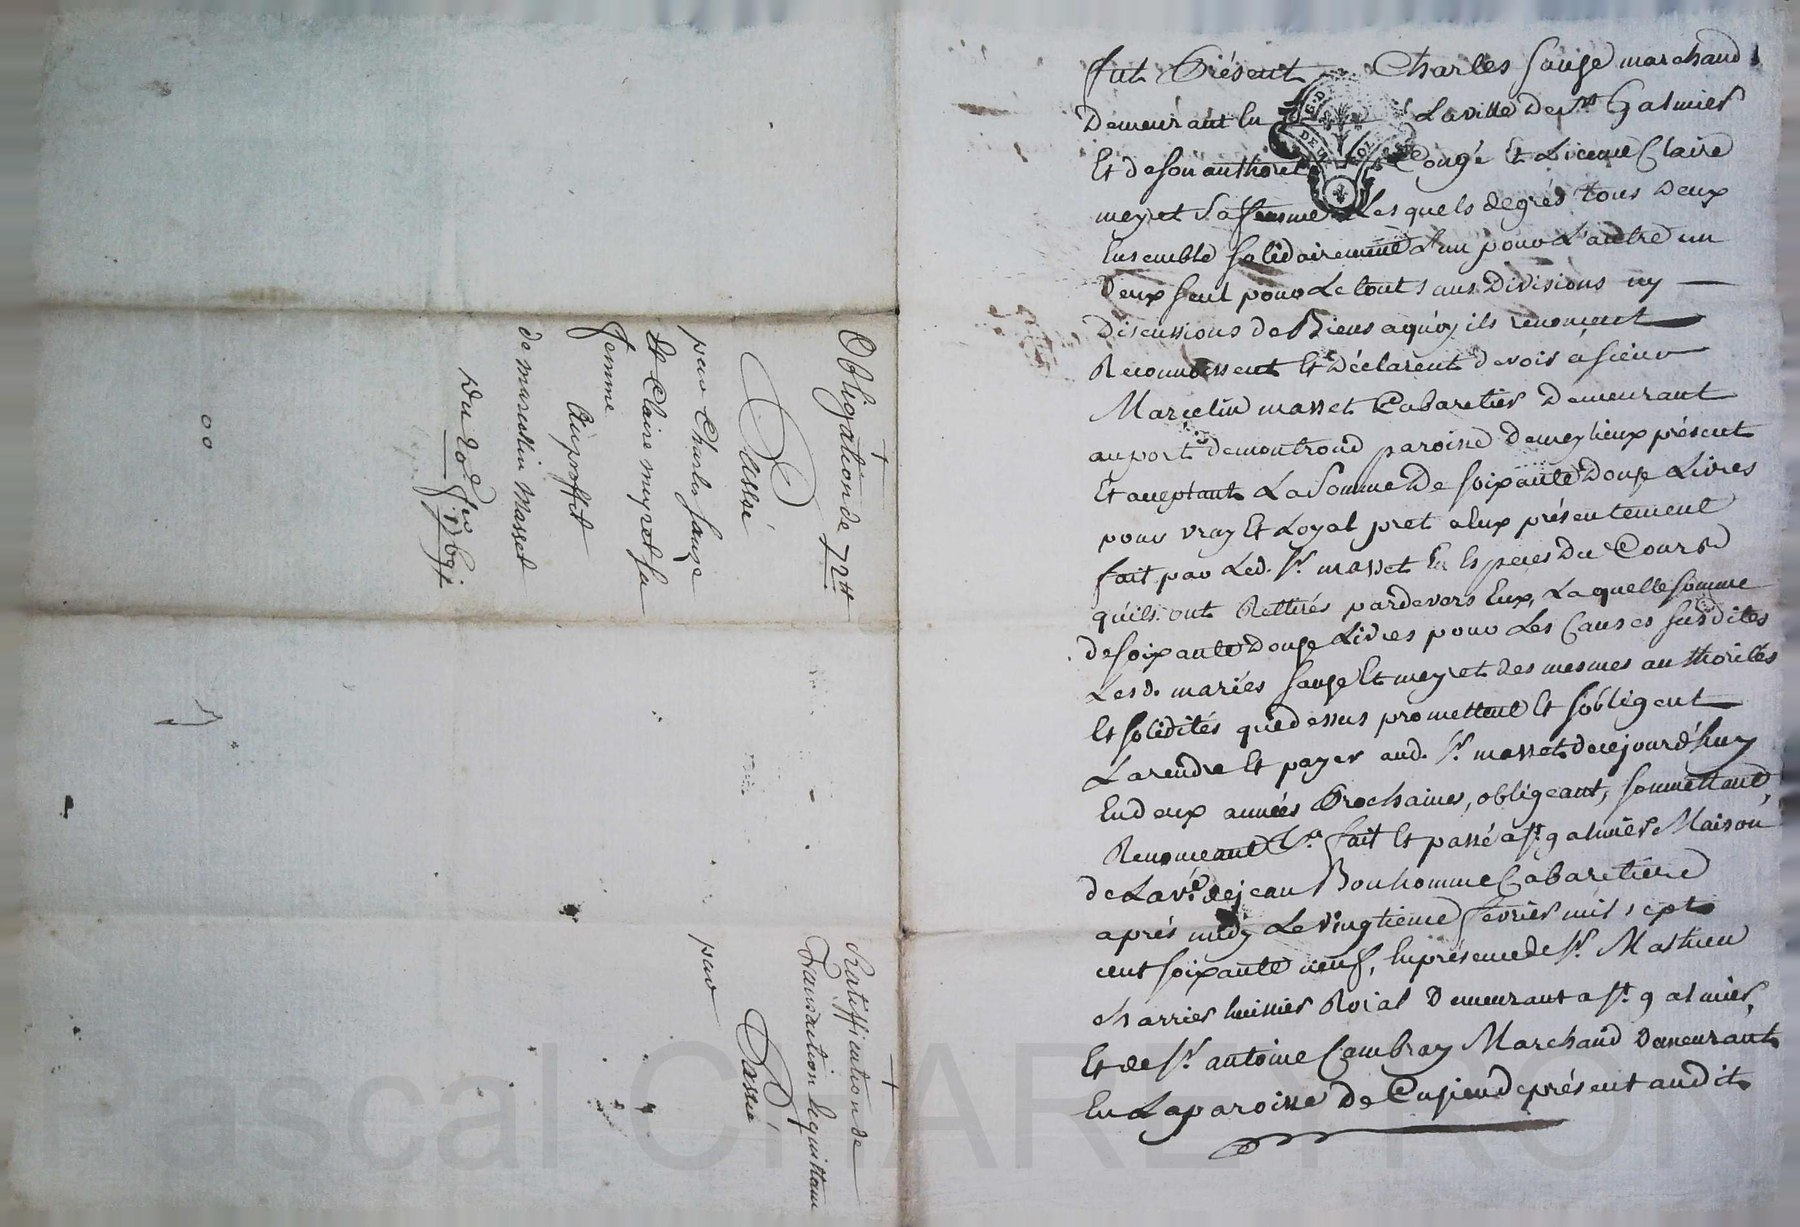 fut Présent Charles sauze marchand
Demeurant En Laville de st Galmier
Et de son authorité Congé Et Licence Claire
meyret Sa femme Lesquels degréd tous Deux
Ensemble solidairement L'un pour L'autre un
Deux seul pour Le tout sans Divisions ny
Discussions de Biens aquoy ils renonçent
Reconnoissent Et Déclarent devoir a sieur
Marcelin masset Cabaretier Demeurant
au port demontrond paroisse demeylieux présent
Et aceptant La Somme De soixante Douze Livres
pour vray Et Loyal pret a Eux présentement
fait par Led. sr. masset En Especes Du Cours
qu'ils ont Rettirés pardevers Eux, Laquelle somme
de soixante Douze Livres pour Les Causes susdites
Lesd. mariés sauze Et meyret des mesmes authorités
Et solidités que dessus promettent Et sobligent
La rendre Et payer aud. sr. masset decejourd'huy
En deux années Prochaines, obligeant, soumettant,
Renonceant &a fait Et passé a st. galmier Maison
de La ve. de jean Bonhomme Cabaretiere
aprés midy Le vingtieme fevrier mil sept
cent soixante neuf, En présence de sr. Mathieu
charrier huissier Roial Demeurant a st. galmier,
Et de sr. antoine Cambray Marchand Demeurant
En La paroisse De Cuzieu de présent audit
Obligation de 72tt
Passé
par Charles sauze
et Claire meyret sa
femme
Au proffit
de marcellin Masset
Du 20e
00
Ratiffication de
Transaction
Passée
par
Pascal CHAREYRON